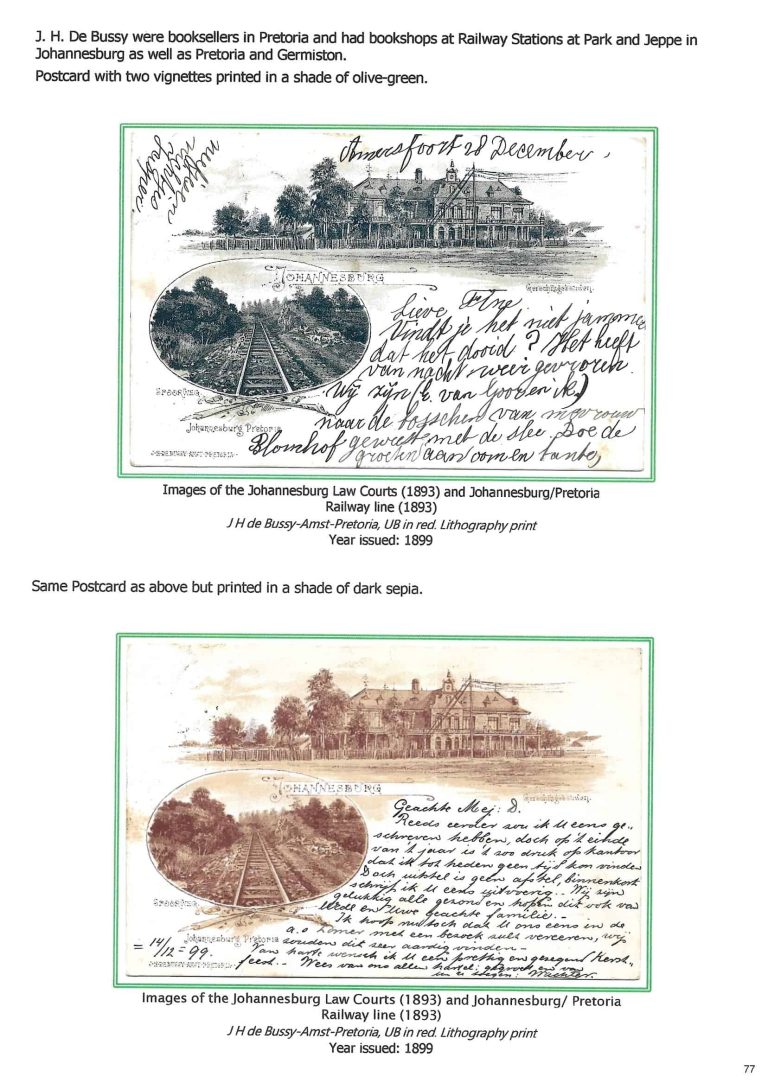 J. H. De Bussy were booksellers in Pretoria and had bookshops at Railway Stations at Park and Jeppe in
Johannesburg as well as Pretoria and Germiston.
Postcard with two vignettes printed in a shade of olive-green.
Amersfoort 28 December,
JOHANNESBURG
Gerechtsgebouwen.
Lieve
Vindt je het niet jammer
dat het dooid? Het heeft
van nacht weer gevroren.
Wij zijn (E. van Gooren ik)
naar de bosschen van mevrouw
Blomhof geweest met de slee. Doe de
groeten aan oom en tante,
SPOORWEG.
Johannesburg Pretoria
Images of the Johannesburg Law Courts (1893) and Johannesburg/Pretoria
Railway line (1893)
J H de Bussy-Amst-Pretoria, UB in red. Lithography print
Year issued: 1899
Same Postcard as above but printed in a shade of dark sepia.
JOHANNESBURG
Gerechtsgebouwen.
Geachte Mej: D.
Reeds eerder zou ik U eens ge-
schreven hebben, doch op 't einde
van 't jaar is 't zoo druk op kantoor
dat ik tot heden geen tijd kon vinden
Doch uitstel is geen afstel, binnenkort
schrijf ik U eens uitvoerig. Wij zijn
gelukkig alle gezond en hopen dit ook van
Uede en Uwe geachte familie.-
Ik hoop nu toch dat U ons eens in de
a.s. zomer met een bezoek zult vereeren, wij
zouden dit zeer aardig vinden-
Van harte wensch ik U een prettig en gezegend Kerst-
feest. Wees van ons allen hartel. gegroet en van
SPOORWEG.
Johannesburg Pretoria
= 14/12 = 99.
Images of the Johannesburg Law Courts (1893) and Johannesburg/ Pretoria
Railway line (1893)
J H de Bussy-Amst-Pretoria, UB in red. Lithography print
Year issued: 1899
77